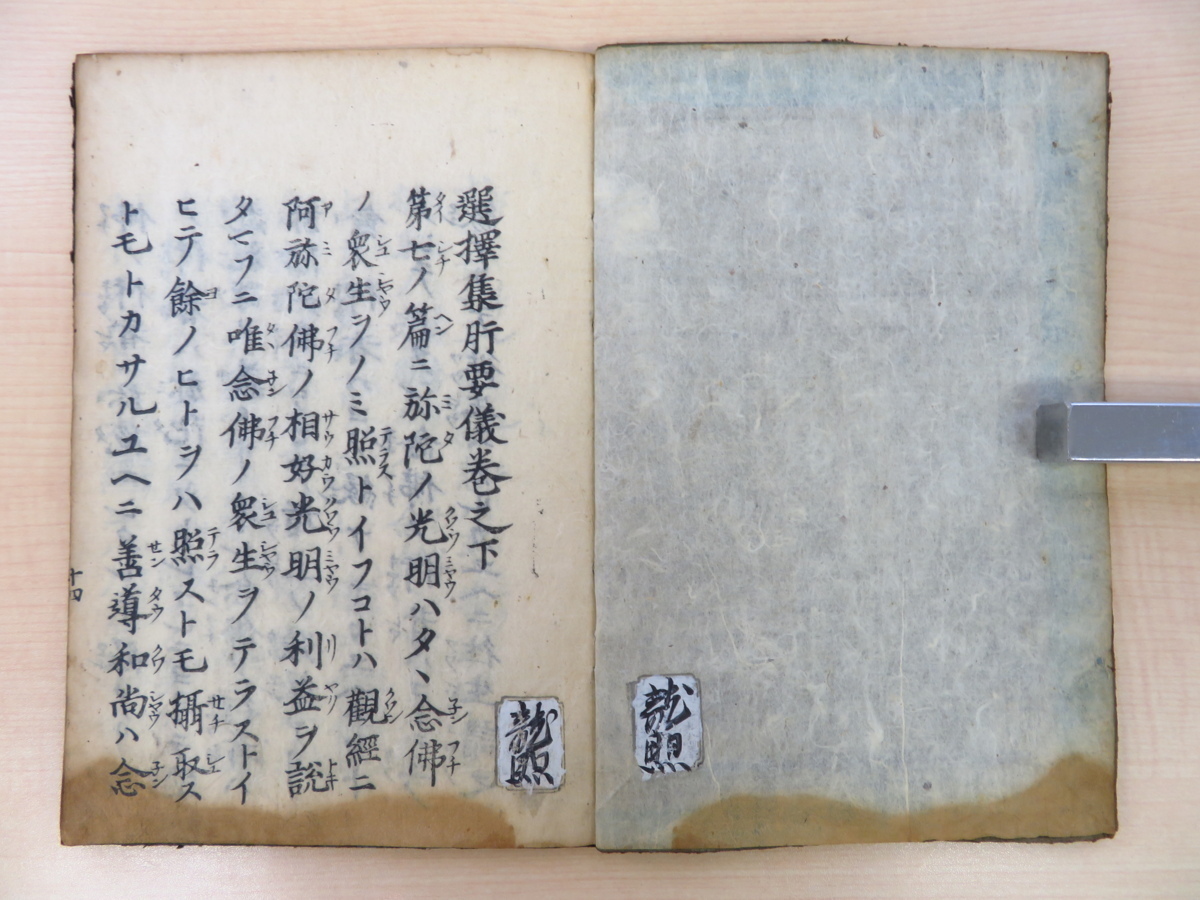 選擇集肝要儀卷之下
第七ノ篇ニ弥陀ノ光明ハタヽ念佛
ノ衆生ヲノミ照トイフコトハ觀經ニ
阿弥陀佛ノ相好光明ノ利益ヲ説
タマフニ唯念佛ノ衆生ヲテラストイ
ヒテ餘ノヒトヲハ照ストモ攝取ス
トモトカサルユヘニ善導和尚ハ念
十四